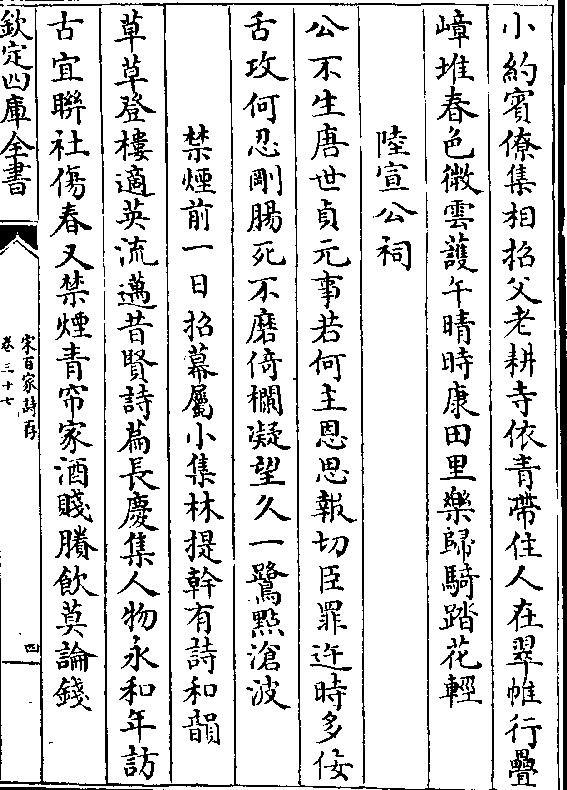 小約賓僚集相招父老耕寺依青嶂住人在翠帷行疊
嶂堆春色微雲護午晴時康田里樂歸騎踏花輕
陸宣公祠
公不生唐世貞元事若何主恩思報切臣罪迕時多佞
舌攻何忍剛腸死不磨倚欄凝望久一鷺點滄波
禁煙前一日招幕屬小集林提幹有詩和韻
草草登樓適英流邁昔賢詩篇長慶集人物永和年訪
古宜聯社傷春又禁煙青帘家酒賤賸飲莫論錢
欽定四庫全書
宋百家詩存
卷三十七
四